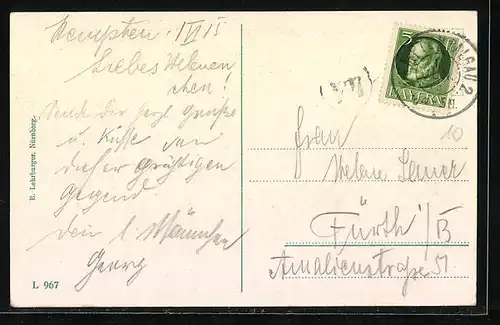 Kempten. 1 VI 15
Liebes Helenchen!
Sende Dir herzl Grüße
u. Küsse von
dieser prächtigen
Gegend
Dein l. Männchen
Georg
B. Lehrburger, Nürnberg.
L 967
5
BAYERN
ALLGÄU 2
10
Frau
Helene Sauer
Fürth i/B
Amalienstraße 51